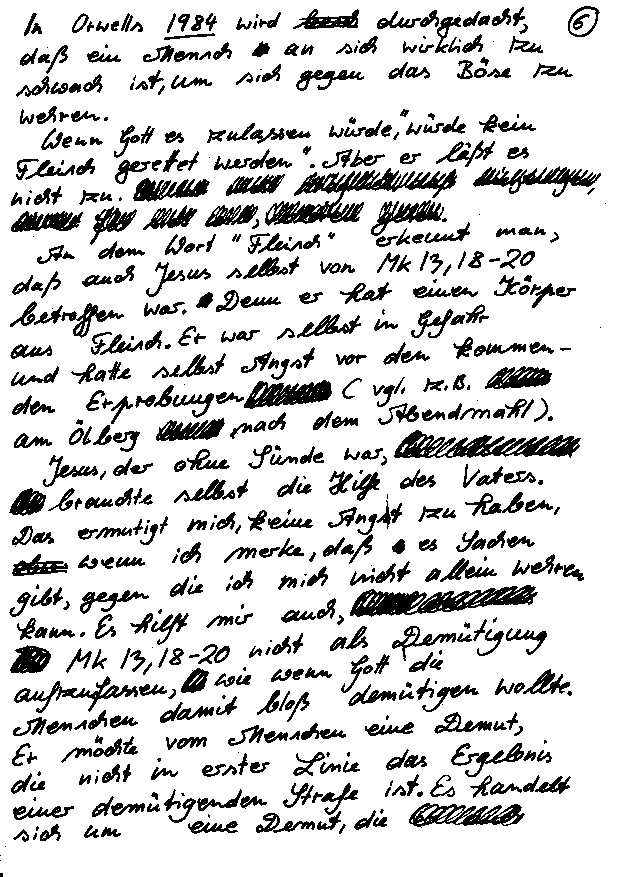 In Orwells 1984 wird durchgedacht, 6
daß ein Mensch an sich wirklich zu
schwach ist, um sich gegen das Böse zu
wehren.
Wenn Gott es zulassen würde, "würde kein
Fleisch gerettet werden". Aber er läßt es
nicht zu.
An dem Wort "Fleisch" erkennt man,
daß auch Jesus selbst von Mk 13, 18-20
betroffen war. Denn er hat einen Körper
aus Fleisch. Er war selbst in Gefahr
und hatte selbst Angst vor den kommen-
den Erprobungen (vgl. z.B.
am Ölberg nach dem Abendmahl).
Jesus, der ohne Sünde war,
brauchte selbst die Hilfe des Vaters.
Das ermutigt mich, keine Angst zu haben,
wenn ich merke, daß es Sachen
gibt, gegen die ich mich nicht allein wehren
kann. Es hilft mir auch,
Mk 13, 18-20 nicht als Demütigung
aufzufassen, wie wenn Gott die
Menschen damit bloß demütigen wollte.
Er möchte vom Menschen eine Demut,
die nicht in erster Linie das Ergebnis
einer demütigenden Strafe ist. Es handelt
sich um eine Demut, die